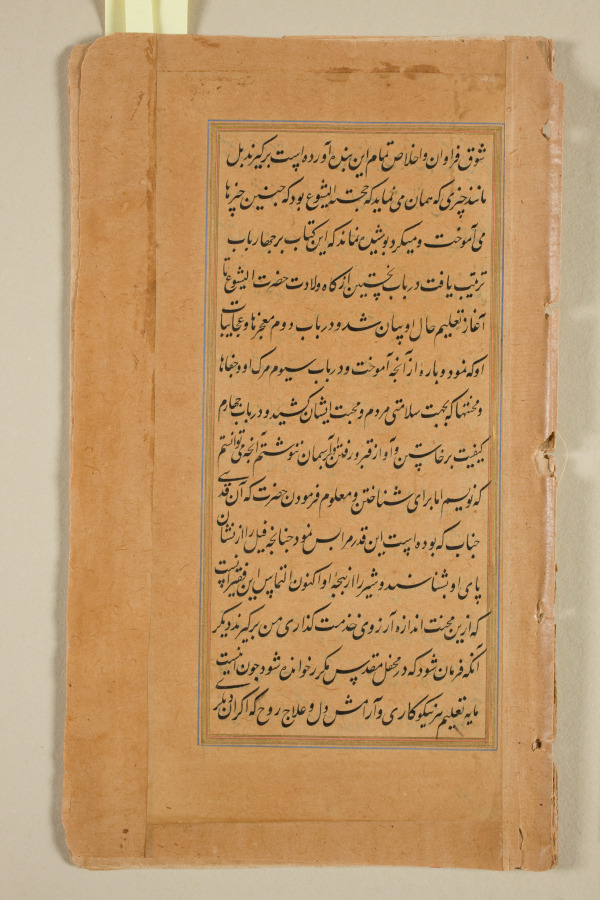 شوق فراوان و اخلاص تمام این بنده آورده است برگیرند بل
مانند چیزی که همان می نماید که حجته الیشوع بود که چنین چیزها
می آموخت و میکرد پوشیده نماند که این کتاب بر چهار باب
ترتیب یافت در باب نخستین از گاه ولادت حضرت الیشوع تا
آغاز تعلیم حال او بیان شد و در باب دوم معجزها و عجایبات
او که نمود و باره از آنچه آموخت و در باب سیوم مرگ او و جفاها
و محنتها که بجهت سلامتی مردم و محبت ایشان کشید و در باب چهارم
کیفیت برخاستن و آواز قبر و رفتن بر آسمان ننوشتم آنچه می توانستم
که نویسم اما برای شناختن و معلوم فرمودن حضرت که آن قدسی
جناب که بوده است این قدر مرا بس نمود چنانچه فیل را از نشان
پای او بشناسند و شیر را از پنجه او اکنون التماس این فقیر آنست
که ازین محنت اندازه آرزوی خدمت گذاری من برگیرند دیگر
آنکه فرمان شود که در محفل مقدس مکرر خوانده شود چون اینست
مایه تعلیم هر نیکوکاری و آرامش دل و علاج روح که اگر آن دیگری